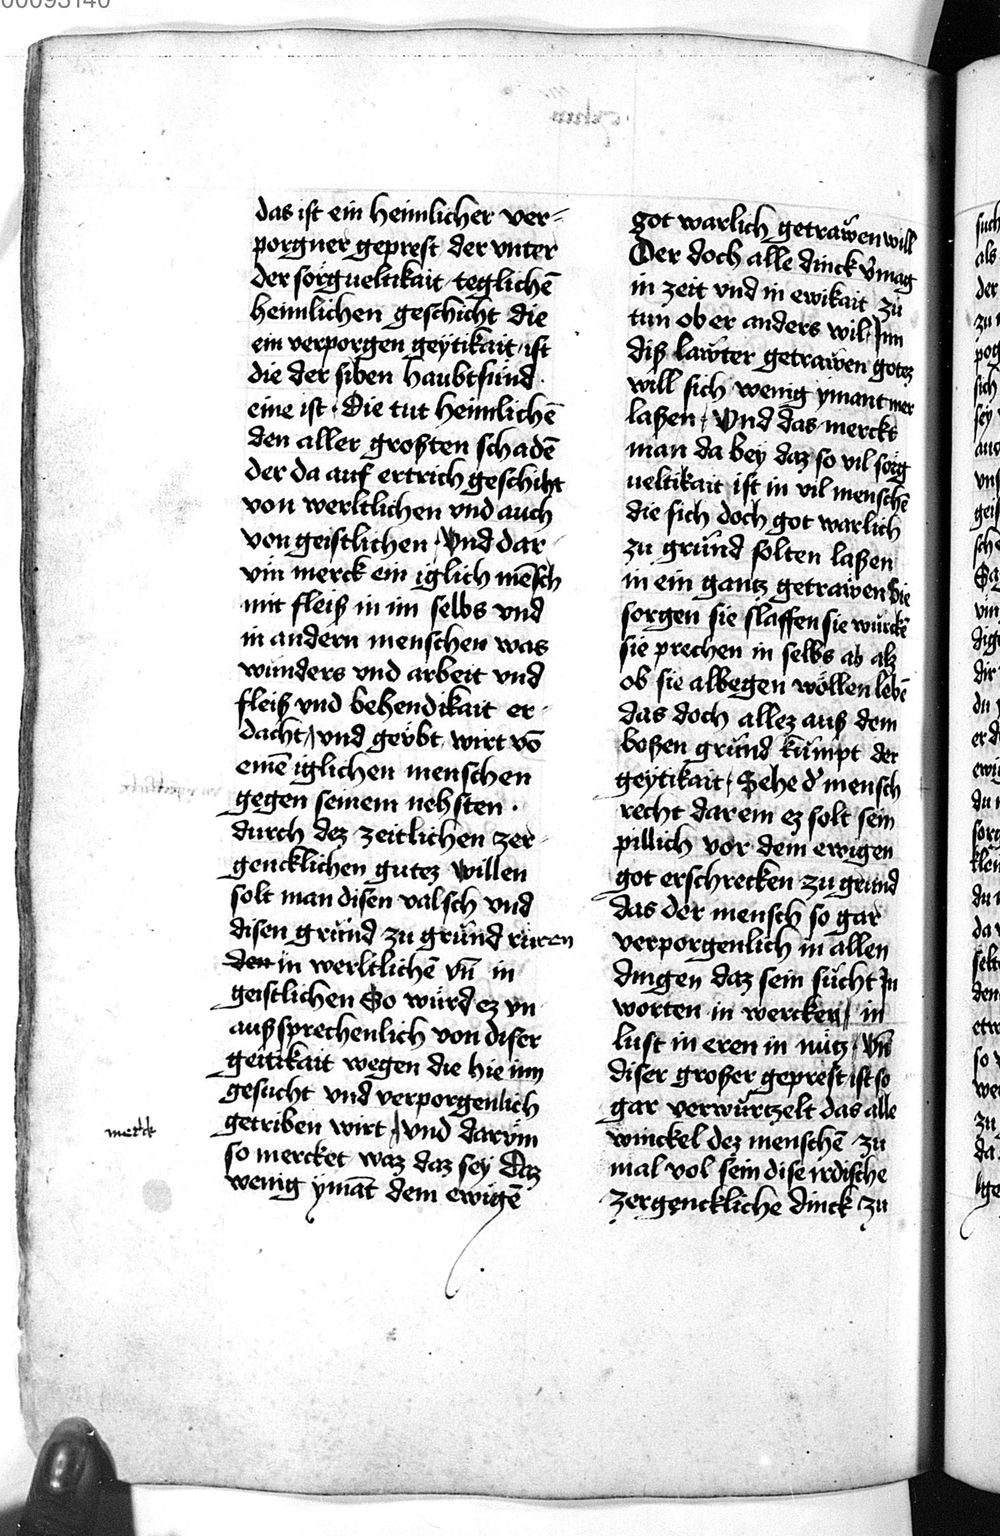 das ist ein heimlicher ver-
porgner geprest der vnter
der sorgueltikait teglichē
heimlichen geschicht die
ein verporgen geytikait ist
die der siben haubtsund
eine ist · Die tut heimlichē
den aller großten schadē
der da auf ertrich geschiht
von werltlichen vnd auch
von geistlichen · Vnd dar-
vm merck ein iglich mēsch
mit fleiß in im selbs vnd
in andern menschen was
wunders vnd arbeit vnd
fleiß vnd behendikait er-
dacht / vnd geübt wirt vō
einē iglichen menschen
gegen seinem nehsten ·
durch dez zeitlichen zer-
gencklichen gutez willen
solt man disen valsch vnd
disen grund zu grund rüren
den in werltlichē vn̄ in
geistlichen So würd ez vn-
außsprechenlich von diser
geitikait wegen die hie inn
gesucht vnd verporgenlich
getriben wirt / vnd darvm
so mercket waz daz sey Daz
wenig ymāt dem ewigē
merck
got warlich getrawen will
Der doch alle dinck v̄mag
in zeit vnd in ewikait zü
tun ob er anders wil / Inn
diß lawter getrawen gotez
will sich wenig ymant mer
laßen / Vnd das merckt
man da bey daz so vil sorg
ueltikait ist in vil menschē
die sich doch got warlich
zu grund solten laßen
in ein gantz getrawen Sie
sorgen sie slaffen sie würckē
sie prechen in selbs ab alz
ob sie albegen wöllen lebē
das doch allez auß dem
boßen grund kümpt der
geytikait / Sehe d' mensch
recht darein ez solt sein
pillich vor dem ewigen
got erschrecken zu grund
das der mensch so gar
verporgenlich in allen
dingen daz sein sücht In
worten in wercken / in
lust in eren in nütz · Vn̄
diser großer geprest ist so
gar verwürtzelt das alle
winckel dez menschē zu
mal vol sein dise irdische
zergenckliche dinck zu